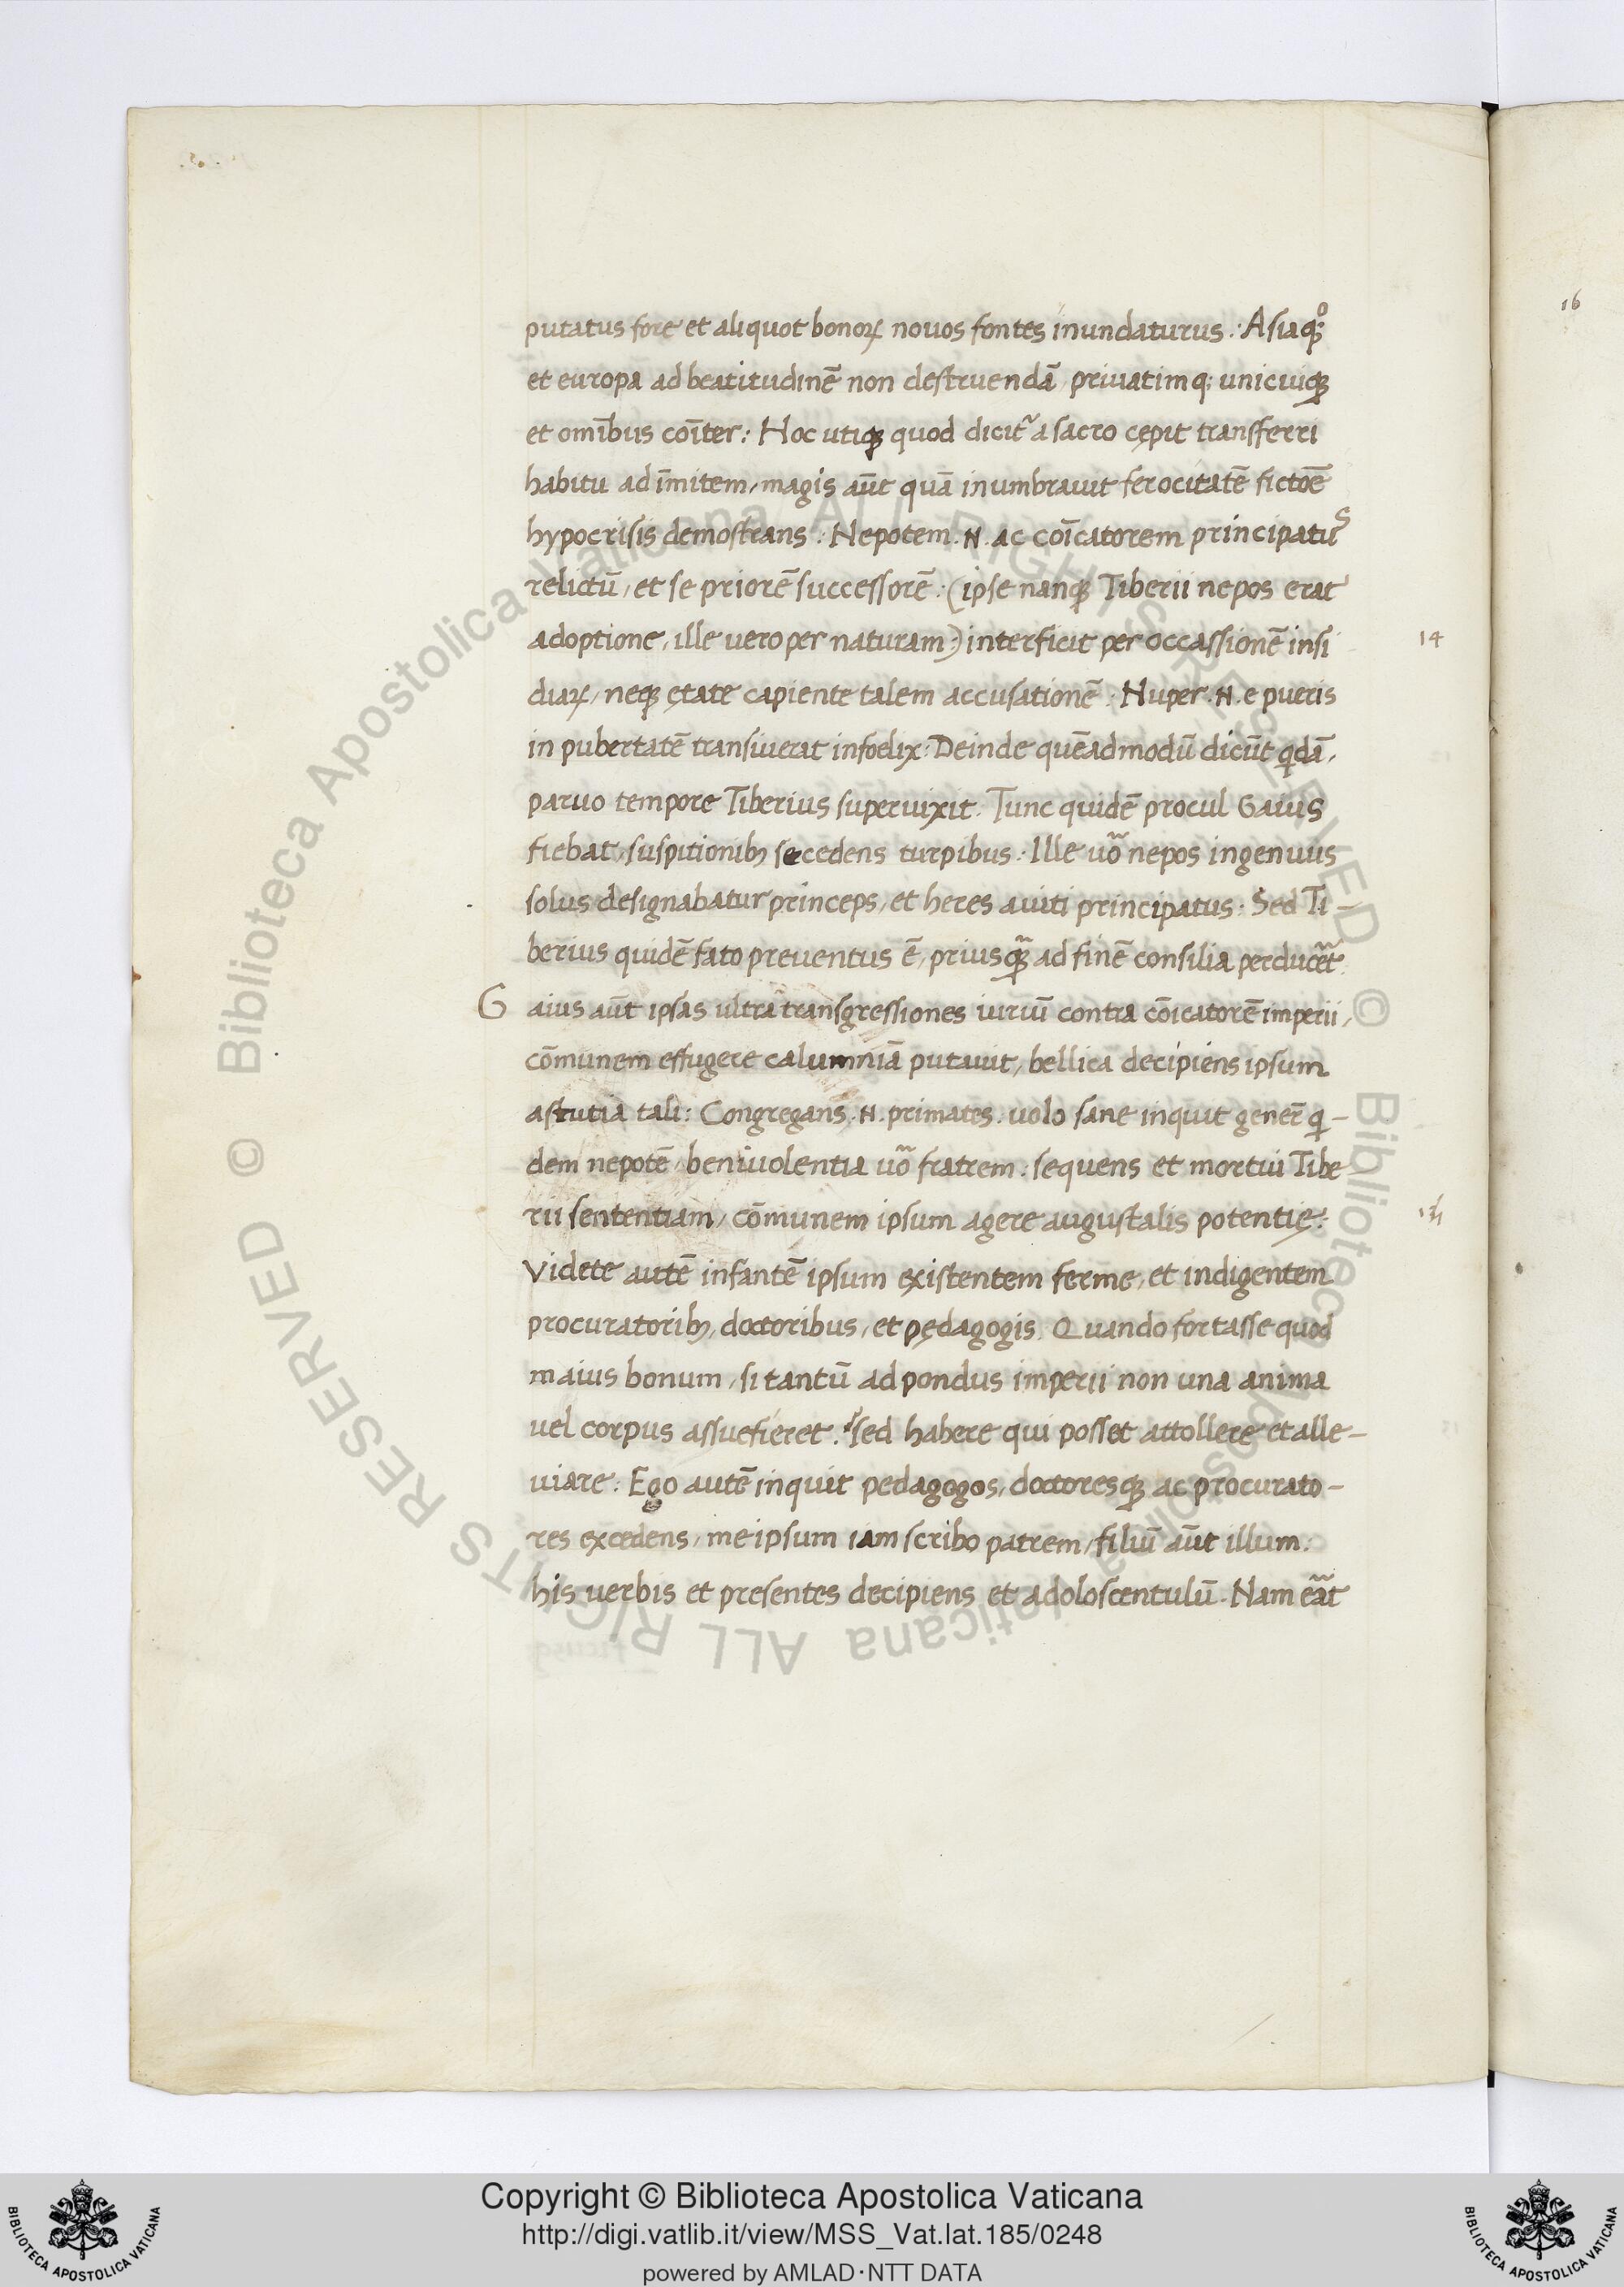 putatus fore et aliquot bonoꝝ nouos fontes inundaturus: Asiaqꝫ°
et europa ad beatitudinē non destruendā, priuatimq; unicuiqꝫ
et omībus coīter: Hoc utiqꝫ quod dicit᷑ a sacro cępit transferri
habitu ad īmitem, magis aūt quā inumbrauit ferocitatē fictoē
hypocrisis demostrans: Nepotem .N. ac coīcatorem principatus
relictū, et se priorē successorē: (ipse nanqꝫ Tiberii nepos erat
adoptione, ille uero per naturam:) interficit per occassionē insi
14
diaꝝ, neqꝫ ętate capiente talem accusationē: Nuper .N. e pueris
in pubertatē transiuerat infoelix: Deinde quēadmodū dicūt qdā,
paruo tempore Tiberius superuixit. Tunc quidē procul Gaius
fiebat, suspitionibꝫ secedens turpibus: Ille uo᷑ nepos ingenuus
solus designabatur princeps, et heres auiti principatus: Sed Ti-
berius quidē fato preuentus ē, priusqꝫ᷑ ad finē consilia perducēt
Gaius aūt ipsas ultra transgressiones iuriū contra cōicatorē imperii,
cōmunem effugere calumniā putauit, bellica decipiens ipsum
astutia tali: Congregans .N. primates. uolo sane inquit generē qi-
dem nepotē, beniuolentia uo᷑ fratrem: sequens et mortui Tibe
rii sententiam, cōmunem ipsum agere augustalis potentię:
Videte autē infantē ipsum existentem ferme, et indigentem
procuratoribꝫ, doctoribus, et pędagogis. Quando fortasse quod
maius bonum, si tantū ad pondus imperii non una anima
uel corpus assuefieret. Sed habere qui posset attollere et alle-
uiare: Ego autē inquit pedagogos, doctoresqꝫ ac procurato-
res excedens, me ipsum iam scribo patrem, filiū aūt illum:
his uerbis et presentes decipiens et adoloscentulū. Nam eat᷑
16
Copyright © Biblioteca Apostolica Vaticana
http://digi.vatlib.it/view/MSS_Vat.lat.185/0248
powered by AMLAD·NTT DATA
BIBLIOTECA APOSTOLICA VATICANA
BIBLIOTECA APOSTOLICA VATICANA
© Biblioteca Apostolica Vaticana ALL RIGHTS RESERVED © Biblioteca Apostolica Vaticana ALL RIGHTS RESERVED